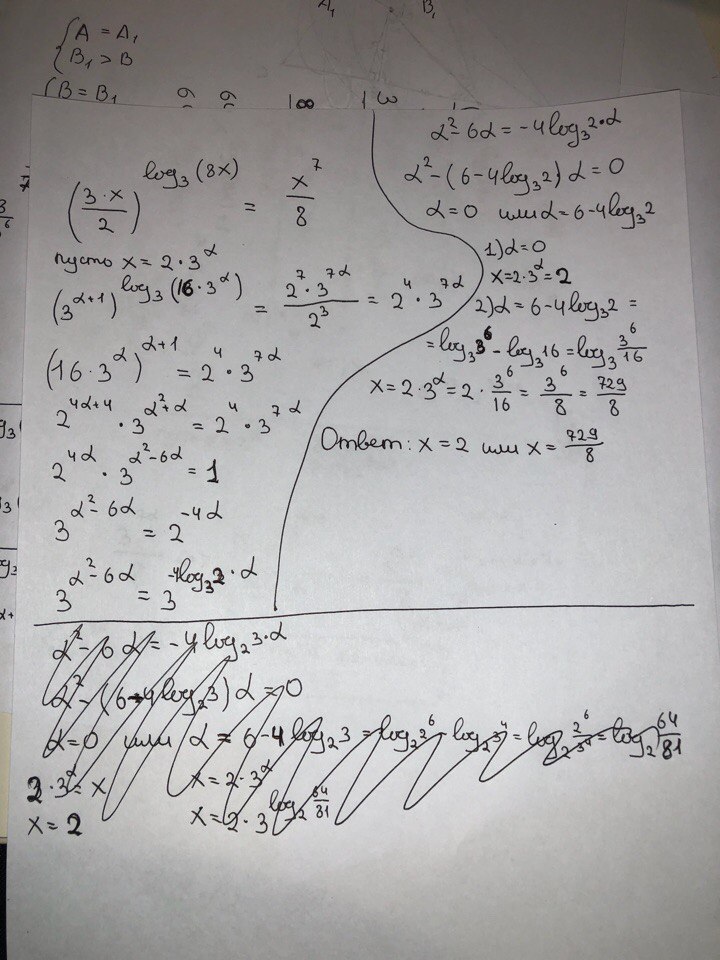 A₁ B₁
{A = A₁
B₁ > B
{B = B₁
(3·x/2)^(log₃(8x)) = x⁷/8
пусть x = 2·3^α
(3^(α+1))^(log₃(16·3^α)) = 2⁷·3^(7α)/2³ = 2⁴·3^(7α)
(16·3^α)^(α+1) = 2⁴·3^(7α)
2^(4α+4)·3^(α²+α) = 2⁴·3^(7α)
2^(4α)·3^(α²-6α) = 1
3^(α²-6α) = 2^(-4α)
3^(α²-6α) = 3^(-4log₃2·α)
α²-6α = -4log₃2·α
α²-(6-4log₃2)α = 0
α=0 или α=6-4log₃2
1) α=0
x=2·3^α=2
2) α = 6-4log₃2 =
=log₃3⁶ - log₃16 = log₃ 3⁶/16
x = 2·3^α = 2·3⁶/16 = 3⁶/8 = 729/8
Ответ: x = 2 или x = 729/8
α²-6α = -4log₂3·α
α²-(6-4log₂3)α = 0
α=0 или α = 6-4log₂3 = log₂2⁶ - log₂3⁴ = log₂ 2⁶/3⁴ = log₂ 64/81
2·3^α = x
x = 2
x = 2·3^α
x = 2·3^(log₂ 64/81)